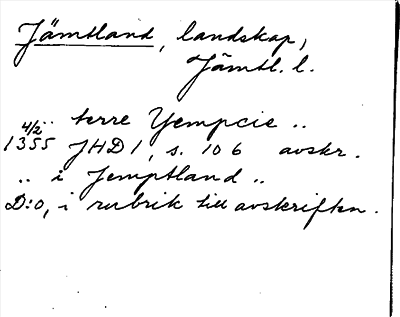 Jämtland, landskap,
Jämtl. l.
.. terre Yempcie ..
4/2 1355 JHD 1, s. 106 avskr.
.. i Jemptland ..
D:o, i rubrik till avskriften.